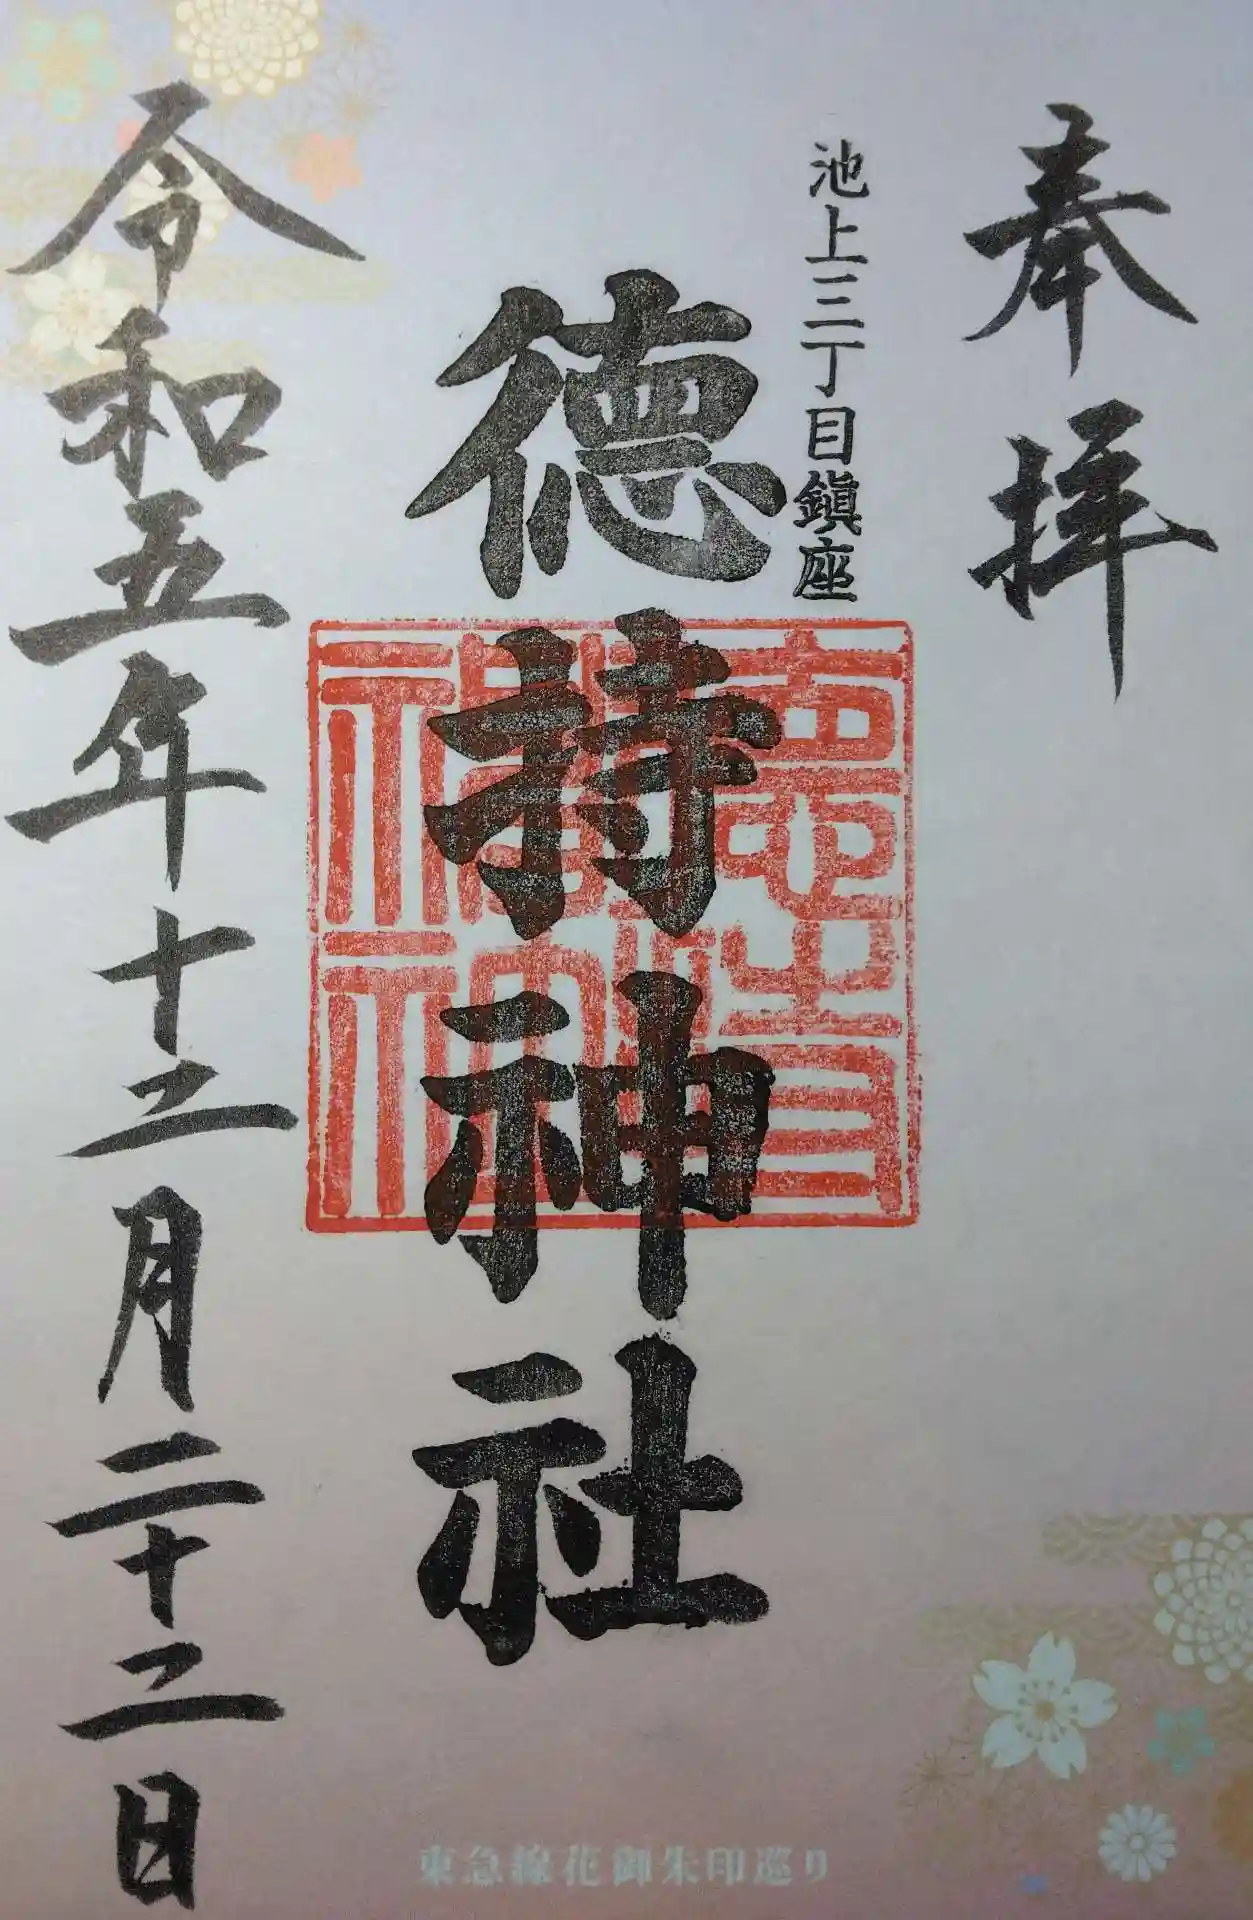 奉拝
池上三丁目鎮座
徳持神社
令和五年十二月二十二日
東急線花御朱印巡り